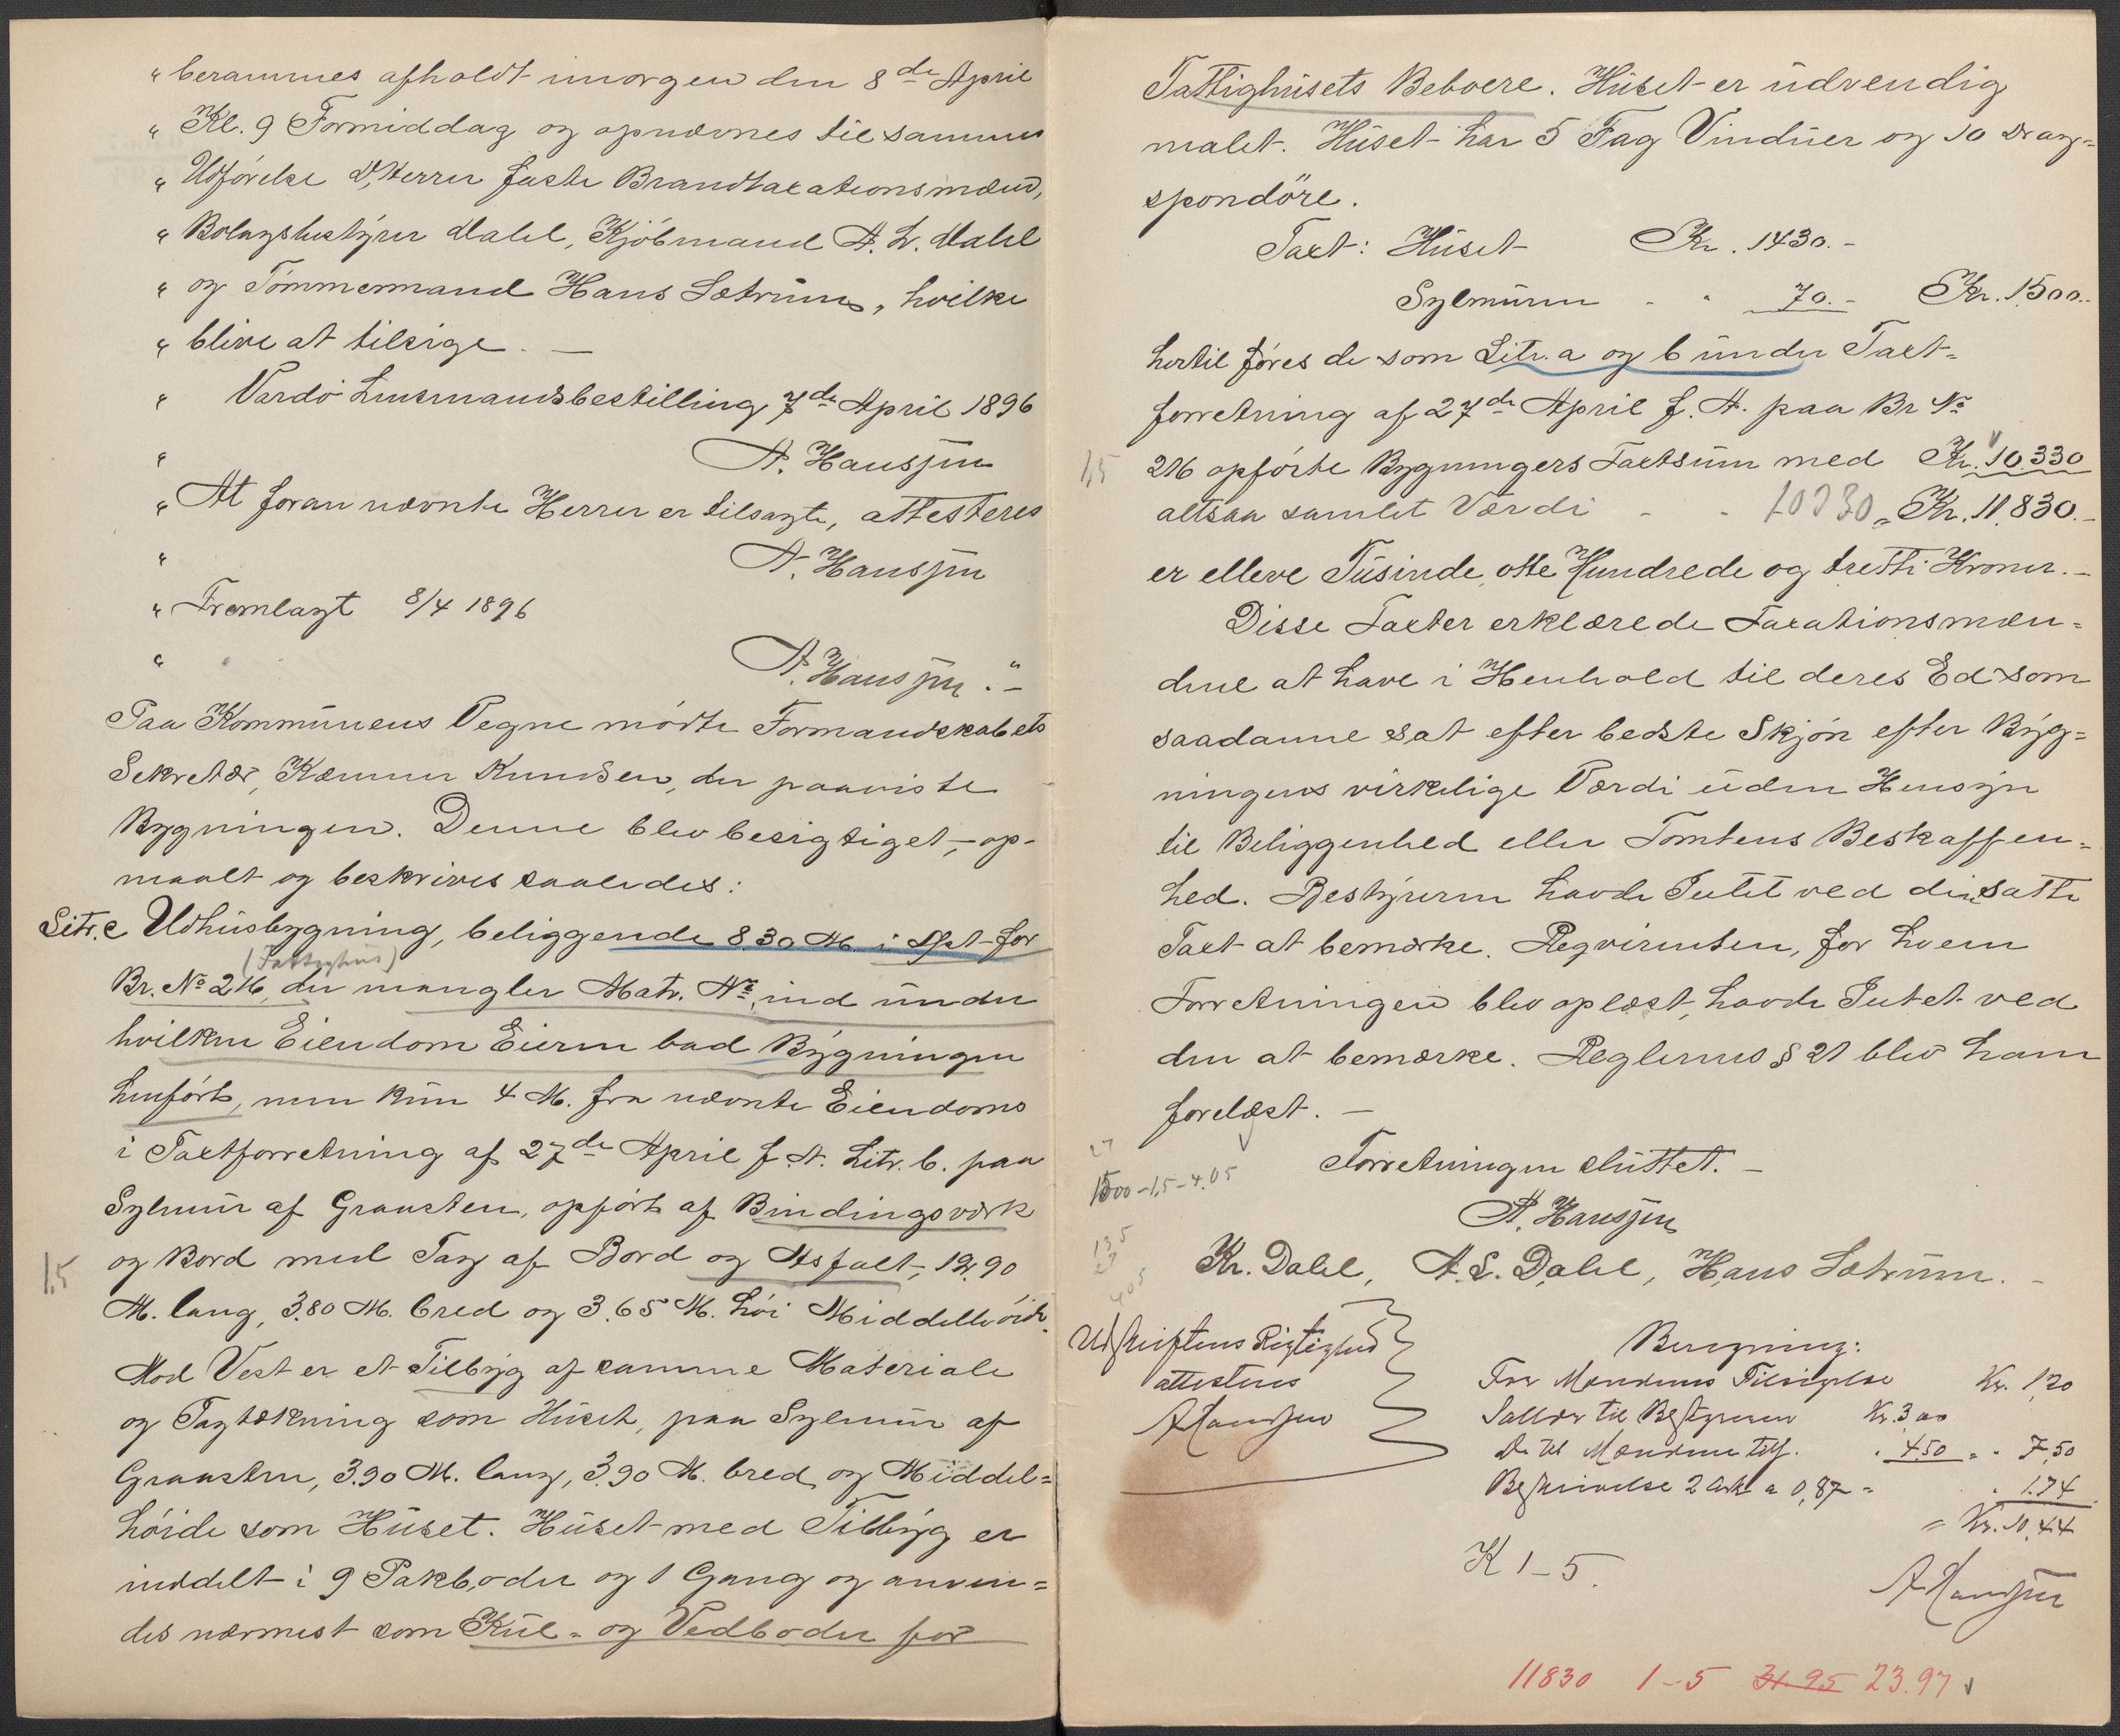 „ berammes afholdt imorgen den 8de April
„ Kl. 9 Formiddag og opnævnes til sammes
„ Udførelse d'Herrer faste Brandtaxationsmænd,
„ Bolagsbestyrer Dahl, Kjøbmand A. L. Dahl
„ og Tømmermand Hans Sætrum, hvilke
„ blive at tilsige. —
„ Vardø Lensmandsbestilling 7de April 1896
„ A. Hansjen
„ At foran nævnte Herrer er tilsagte, attesteres
„ A. Hansjen
„ Fremlagt 8/4 1896
„ A. Hansjen."—
Paa Kommunens Vegne mødte Formandskabets
Sekretær, Kæmner Knudsen, der paaviste
Bygningen. Denne blev besigtiget, op-
maalt og beskrives saaledes:
Litr. c Udhusbygning, beliggende 8.30 M. i Øst for
(Fattighus)
Br. No 216, der mangler Matr. No, ind under
hvilken Eiendom Eieren bad Bygningen
henført, men kun 4 M. fra nævnte Eiendoms
i Taxtforretning af 27de April f. A. Litr. b. paa
Sylmur af Graasten, opført af Bindingsværk
15
og Bord med Tag af Bord og Asfalt, 12.90
M. lang, 3.80 M. bred og 3.65 M. høi Middelhøide.
Mod Vest er et Tilbyg af samme Materiale
og Tagtækning som Huset, paa Sylmur af
Graasten, 3.90 M. lang, 3.90 M. bred og Middel=
høide som Huset. Huset med Tilbyg er
inddelt i 9 Pakboder og 1 Gang og anven=
des nærmest som Kul- og Vedboder for
Fattighusets Beboere. Huset er udvendig
malet. Huset har 5 Fag Vinduer og 10 Drag=
spondøre.
Taxt: Huset Kr. 1430.-
Sylmuren - " 70.- Kr. 1500.-
hertil føres de som Litr. a og b under Taxt=
forretning af 27de April f. A. paa Br No
1,5 216 opførte Bygningers Taxtsum med Kr. 10.330
altsaa samlet Værdi - - 10330 = Kr. 11.830.-
er elleve Tusinde, otte Hundrede og tretti Kroner.-
Disse Taxter erklærede Taxationsmæn=
dene at have i Henhold til deres Ed som
saadanne sat efter bedste Skjøn efter Byg=
ningens virkelige Værdi uden Hensyn
til Beliggenhed eller Tomtens Beskaffen=
hed. Bestyreren havde Intet ved den satte
Taxt at bemærke. Reqvirenten, for hvem
Forretningen blev oplæst, havde Intet ved
den at bemærke. Reglernes § 21 blev ham
forelæst. —
27
1500-1,5-4.05 Forretningen sluttet. —
A. Hansjen
135
27
405
Kr. Dahl, A. L. Dahl, Hans Sætrum. -
Udskriftens Rigtighed
attesteres
A Hansjen
Beregning:
For Mændenes Tilsigelse Kr. 1,20
Sallær til Bestyreren Kr. 3 00
Do til Mændene tils. " 4.50 = " 7,50
Beskrivelse 2 Ark a 0,87 = " 1.74
= Kr. 10,44
K 1-5.
A Hansjen
11830 1-5 31.95 23.97